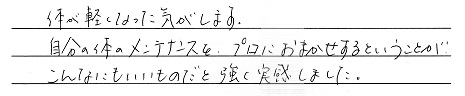 体が軽くなった気がします。
自分の体のメンテナンスを、プロにおまかせするということが
こんなにもいいものだと強く実感しました。